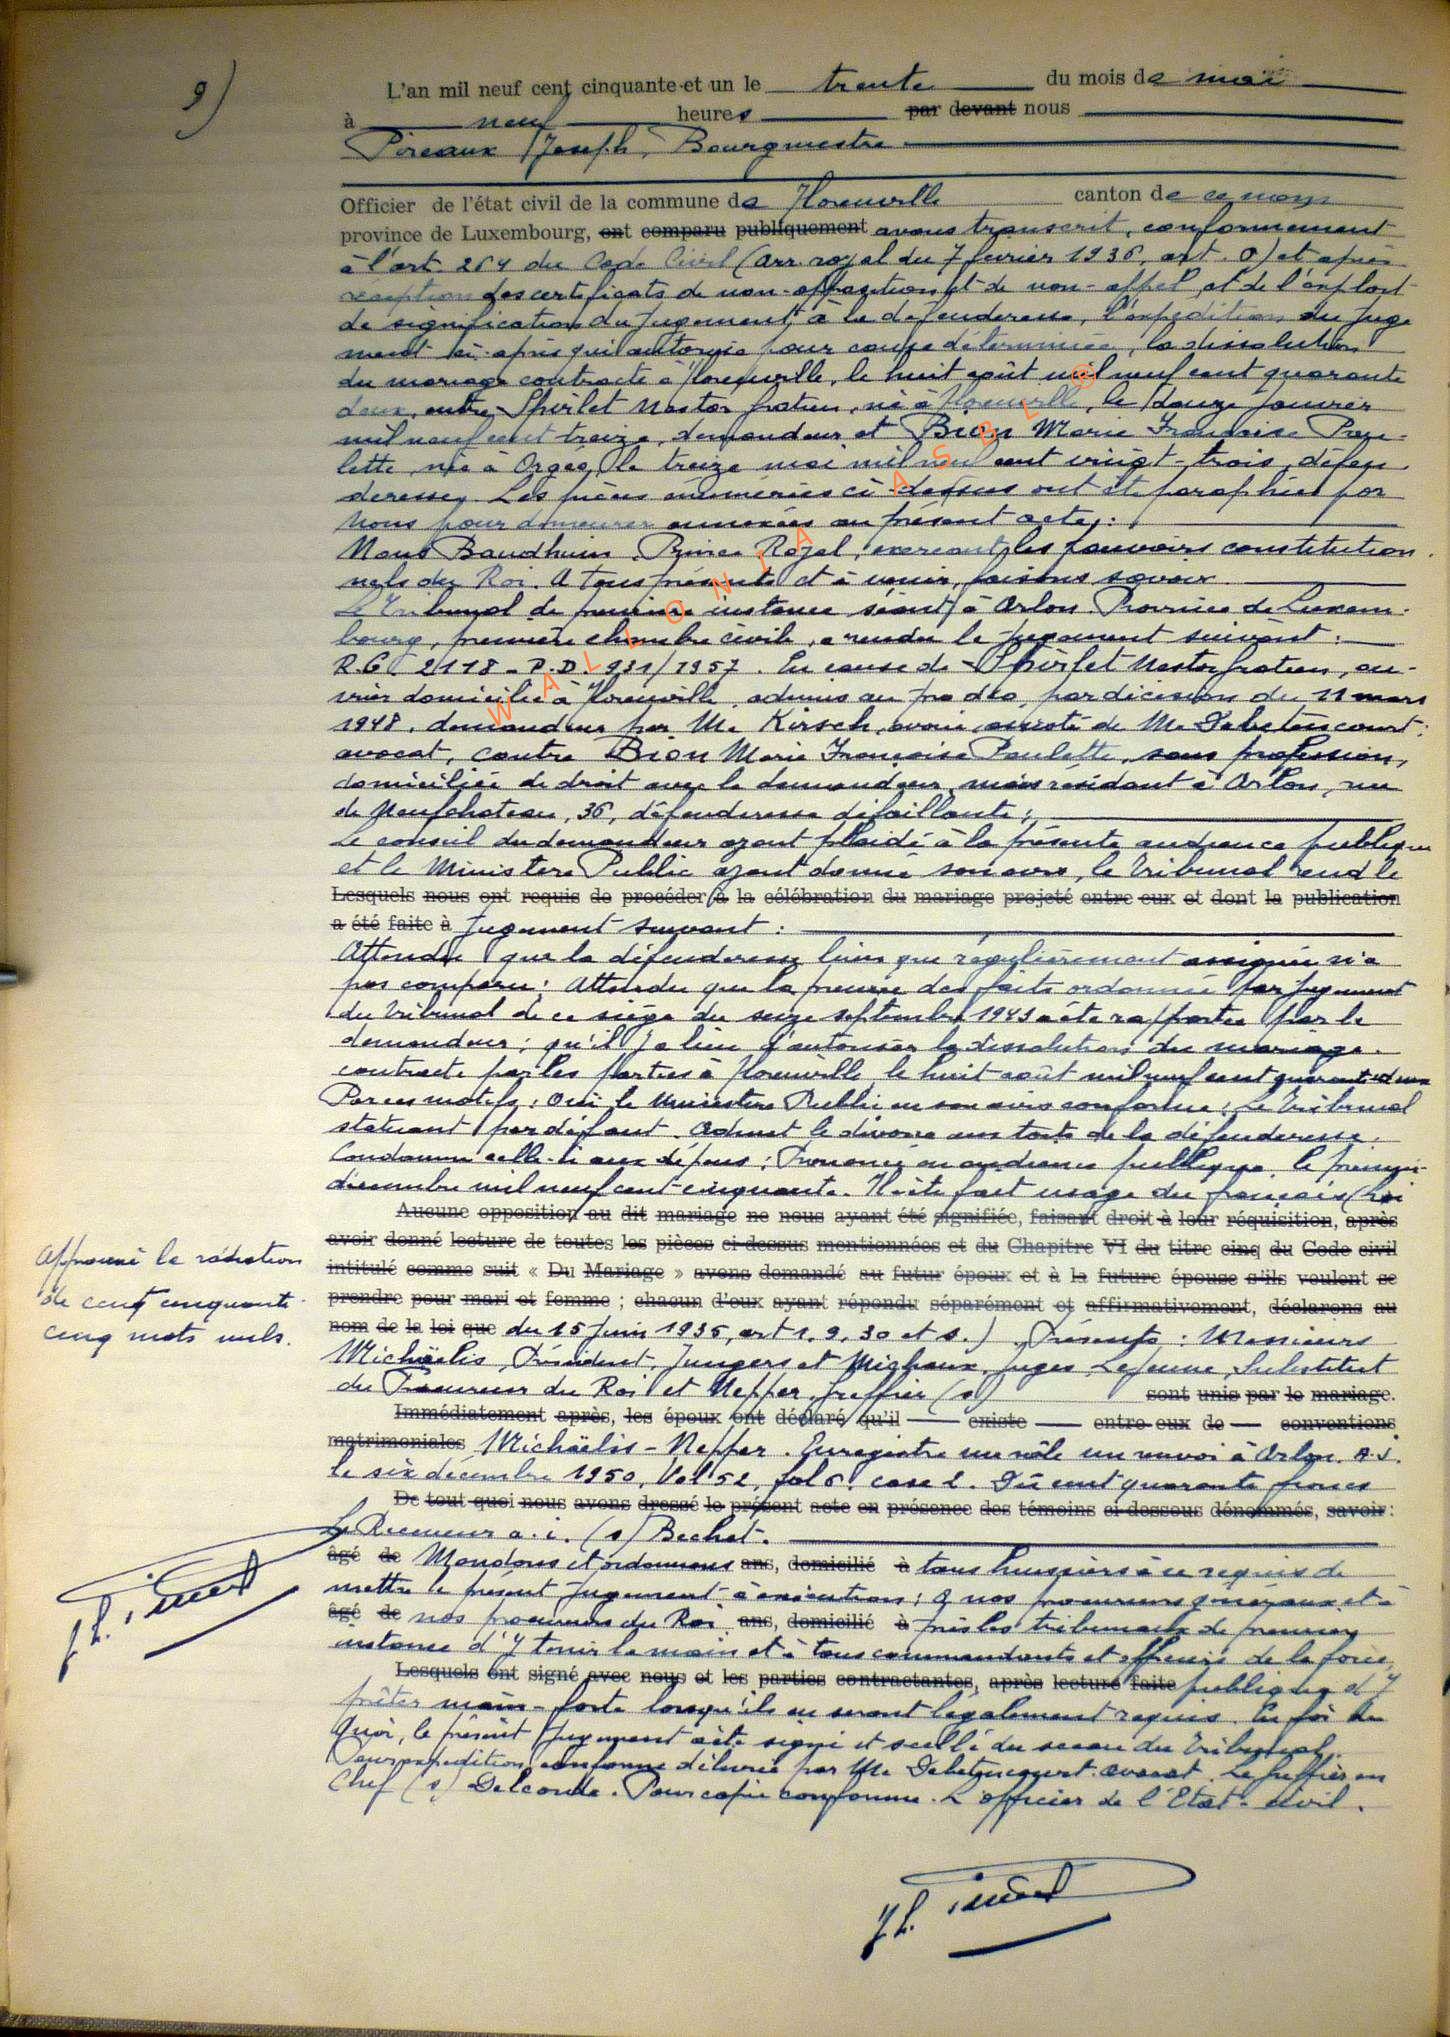 9)
L'an mil neuf cent cinquante et un le trente du mois de mai
à neuf heures par devant nous
Pireaux Joseph, Bourgmestre
Officier de l'état civil de la commune de Florenville canton de ce nom
province de Luxembourg, ont comparu publiquement avons transcrit, conformément
à l'art. 264 du Code Civil (arr. royal du 7 février 1936, art. ) et après
réception des certificats de non-opposition et de non-appel et de l'exploit
de signification du jugement à la défenderesse, l'expédition du juge
ment ci-après qui autorise pour cause déterminée, la dissolution
du mariage contracté à Florenville, le huit août mil neuf cent quarante
deux, entre Spirlet Nestor , né à Florenville, le douze janvier
mil neuf cent treize, demandeur et Bion Marie Françoise Pau-
lette, née à Orgéo, le treize mai mil neuf cent vingt-trois, défen
deresse. Les pièces énumérées ci-dessus ont été paraphées par
Nous pour demeurer annexées au présent acte :
Nous Baudhuin, Prince Royal, exerçant les pouvoirs constitution
nels du Roi. A tous présents et à venir, faisons savoir
Le Tribunal de première instance séant à Arlon Province de Luxem-
bourg, première chambre civile, a rendu le jugement suivant :
R.G. 2118 - P.D. 931/1957. En cause de Spirlet Nestor , ou-
vrier domicilié à Florenville, admis au pro deo, par décision du 11 mars
1948, demandeur par Me Kirsch, avoué assisté de Me Debetencourt,
avocat, contre Bion Marie Françoise Paulette, sans profession,
domiciliée de droit avec le demandeur, mais résidant à Arlon, rue
de Neufchateau, 36, défenderesse défaillante ;
Le conseil du demandeur ayant plaidé à la présente audience publique
et le Ministère Public ayant donné son avis, le Tribunal rend le
Lesquels nous ont requis de procéder à la célébration du mariage projeté entre eux et dont la publication
a été faite à jugement suivant :
Attendu que la défenderesse bien que régulièrement assignée n'a
pas comparu ; Attendu que la preuve des faits ordonnée par jugement
du Tribunal de ce siège du seize septembre 1949 a été rapportée par le
demandeur ; qu'il y a lieu d'autoriser la dissolution du mariage
contracté par les parties à Florenville le huit août mil neuf cent quarante deux
Par ces motifs : Ouï le Ministère Public en son avis conforme ; Le Tribunal
statuant par défaut. Admet le divorce aux torts de la défenderesse.
Condamne celle-ci aux dépens ; Prononcé en audience publique le premier
décembre mil neuf cent cinquante. Il a été fait usage du français (loi
Aucune opposition au dit mariage ne nous ayant été signifiée, faisant droit à leur réquisition, après
avoir donné lecture de toutes les pièces ci-dessus mentionnées et du Chapitre VI du titre cinq du Code civil
intitulé comme suit « Du Mariage » avons demandé au futur époux et à la future épouse s'ils veulent se
prendre pour mari et femme ; chacun d'eux ayant répondu séparément et affirmativement, déclarons au
nom de la loi que du 15 juin 1935, art 1. 9. 30 et s.) Présents : Messieurs
Michaëlis, Président, Jungers et Michaux, juges Lejeune, Substitut
du Procureur du Roi et Neffer, greffier (s) sont unis par le mariage.
Immédiatement après, les époux ont déclaré qu'il existe entre eux de conventions
matrimoniales Michaëlis - Neffer. Enregistré un rôle un renvoi à Arlon. A.J.
le six décembre 1950, Vol 52, fol 6. case 2. Dû cent quarante francs
De tout quoi nous avons dressé le présent acte en présence des témoins ci-dessous dénommés, savoir :
Le Receveur a. i. (s) Bechet.
âgé de Mandons et ordonnons ans, domicilié à tous huissiers à ce requis de
mettre le présent jugement à exécution ; A nos procureurs généraux et à
âgé de nos procureurs du Roi ans, domicilié à près les tribunaux de première
instance d'y tenir la main et à tous commandants et officiers de la force
Lesquels ont signé avec nous et les parties contractantes, après lecture faite publique d'y
prêter main-forte lorsqu'ils en seront légalement requis. En foi de
quoi, le présent jugement a été signé et scellé du sceau du Tribunal.
Pour expédition conforme délivrée par Me Debetencourt. avocat. Le Greffier en
Chef (s) Delconde. Pour copie conforme. L'officier de l'Etat-civil.
Approuvé la radiation
de cent cinquante
cinq mots nuls.
WALLONIA ASBL ®